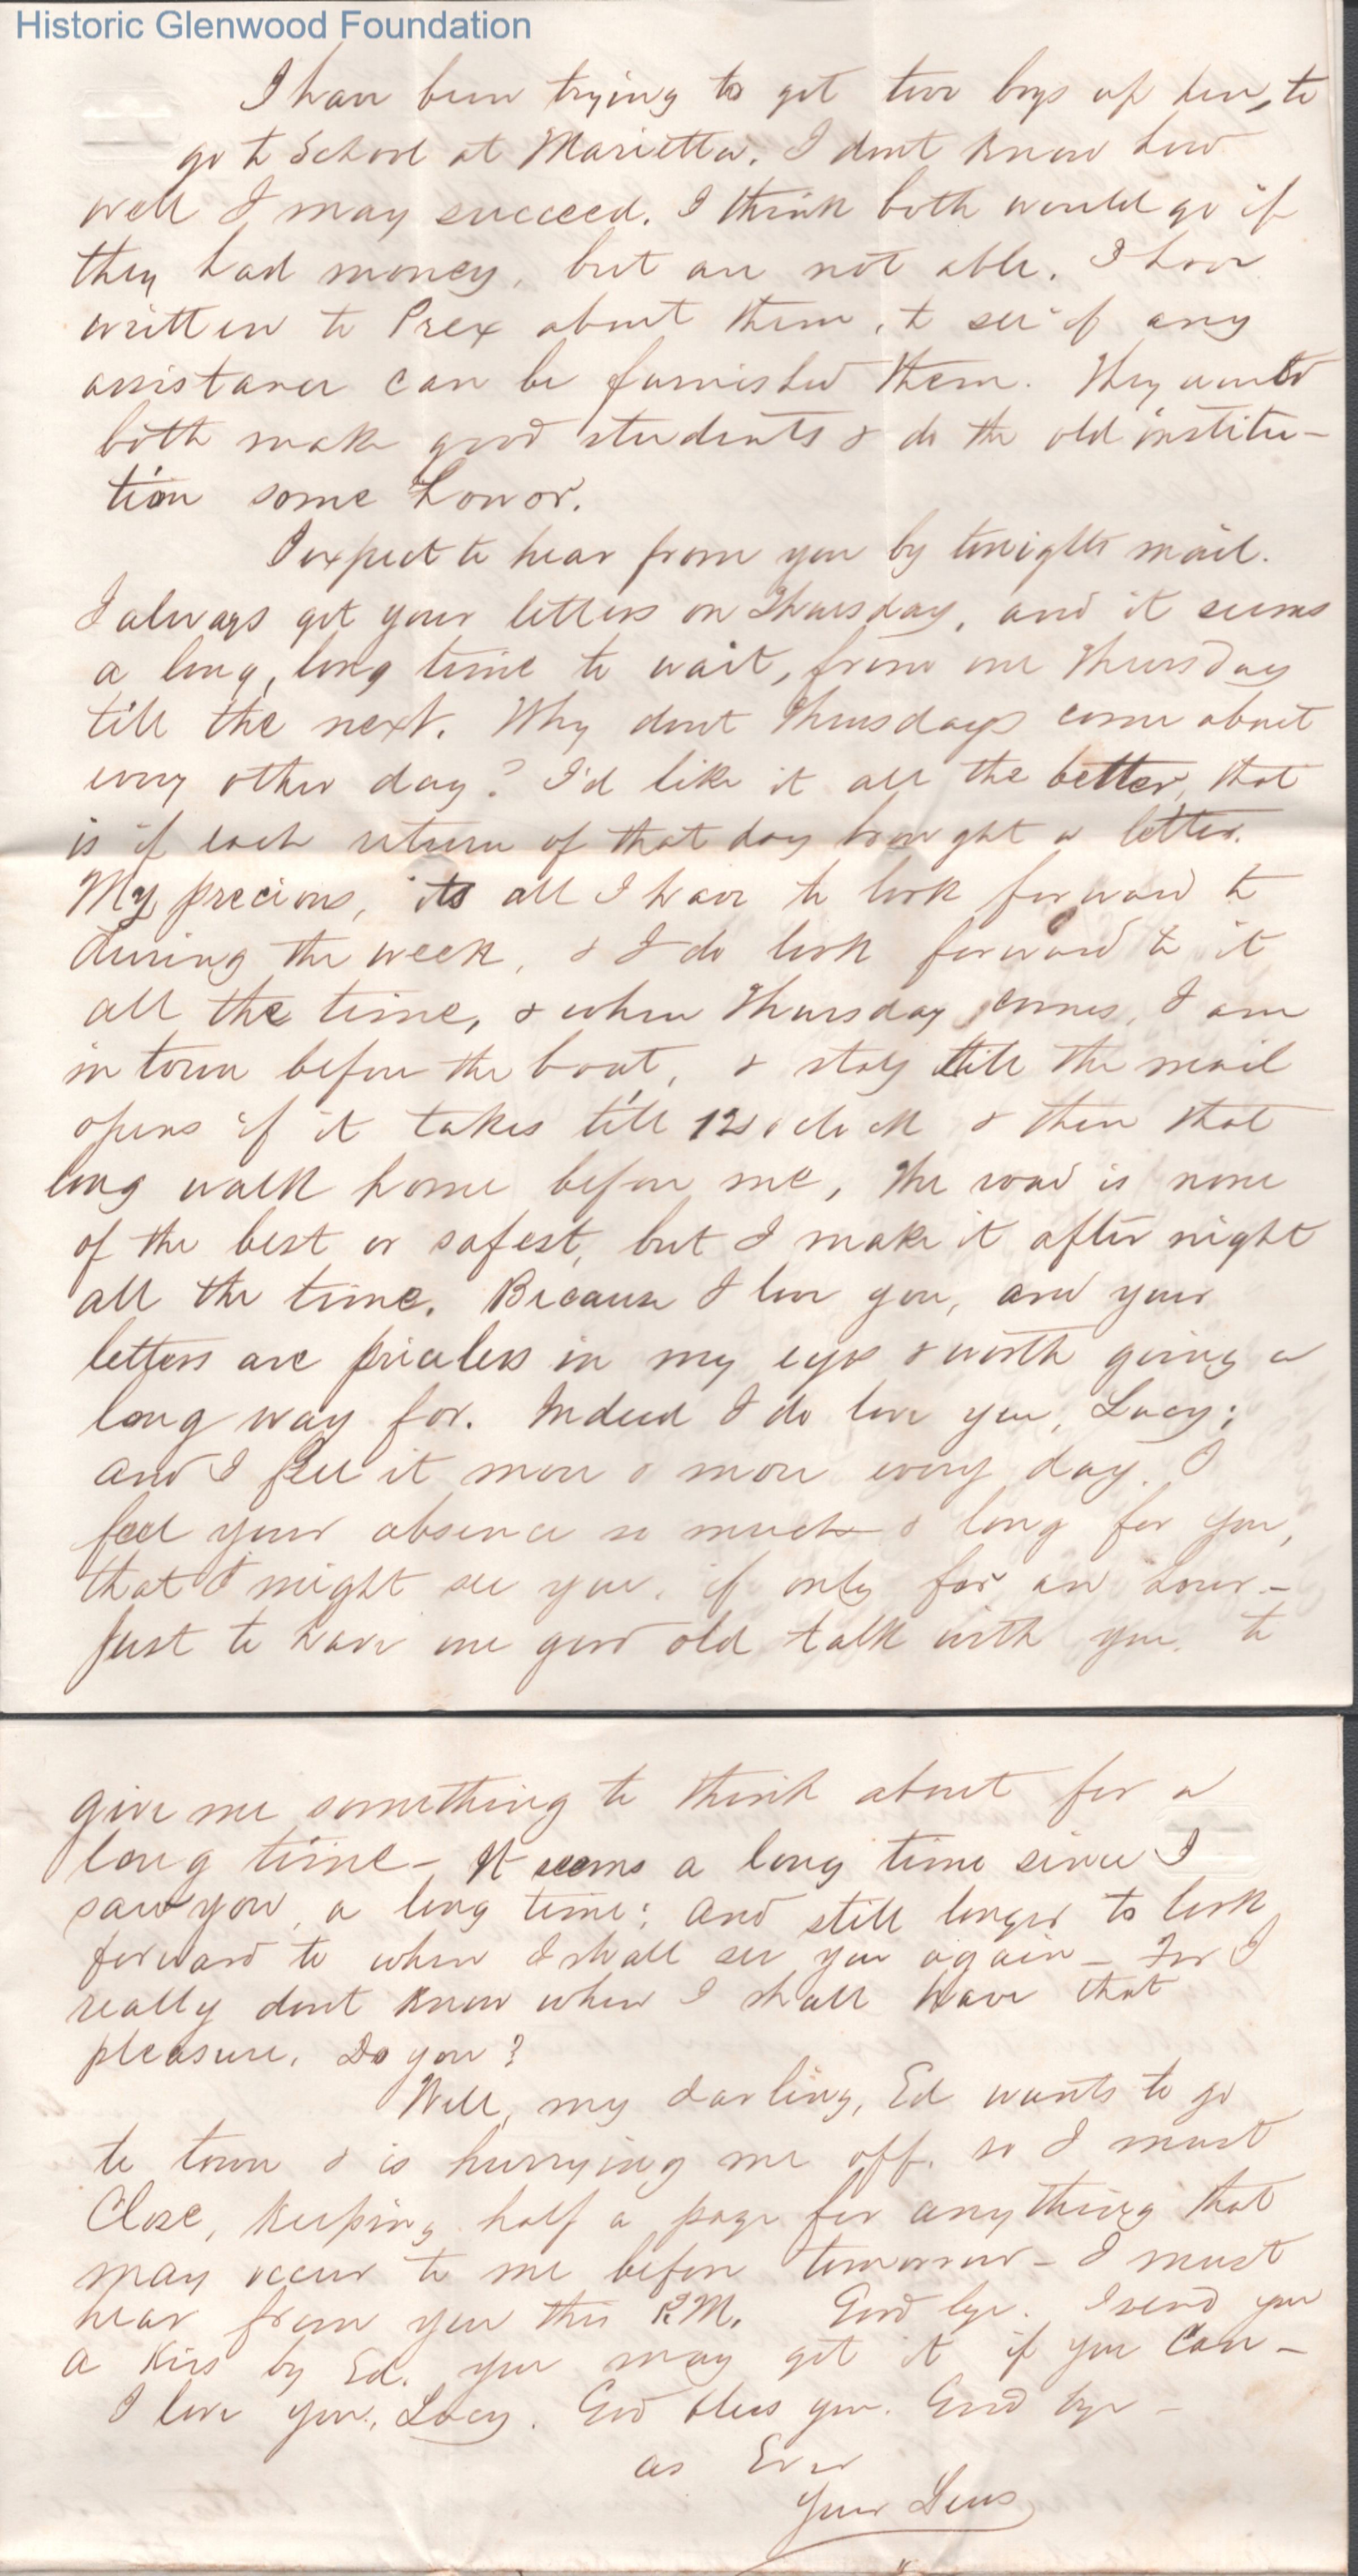 Historic Glenwood Foundation
I have been trying to get two boys up here, to
go to School at Marietta. I dont know how
well I may succeed. I think both would go if
they had money, but are not able. I have
written to Prex about them, to see if any
assistance can be furnished them. They would
both make good students & do the old institu-
tion some honor.
I expect to hear from you by tonights mail.
I always get your letters on Thursday, and it seems
a long, long time to wait, from one Thursday
till the next. Why dont Thursdays come about
every other day? I'd like it all the better, that
is if each return of that day brought a letter.
My precious, its all I have to look forward to
during the week, & I do look forward to it
all the time, & when Thursday comes, I am
in town before the boat, & stay till the mail
opens if it takes till 12 o'clock & then that
long walk home before me, the road is none
of the best or safest, but I make it after night
all the time. Because I love you, and your
letters are priceless in my eyes & worth going a
long way for. Indeed I do love you, Lucy;
and I feel it more & more every day. I
feel your absence so much & long for you,
that I might see you, if only for an hour -
Just to have one good old talk with you, to
give me something to think about for a
long time - It seems a long time since I
saw you, a long time; and still longer to look
forward to when I shall see you again - For I
really dont know when I shall have that
pleasure. Do you?
Well, my darling, Ed wants to go
to town & is hurrying me off, so I must
Close, keeping half a page for anything that
may occur to me before tomorrow - I must
hear from you this P.M. Good bye. I send you
a kiss by Ed. you may get it if you can -
I love you, Lucy. God bless you. Good bye -
as Ever
Your